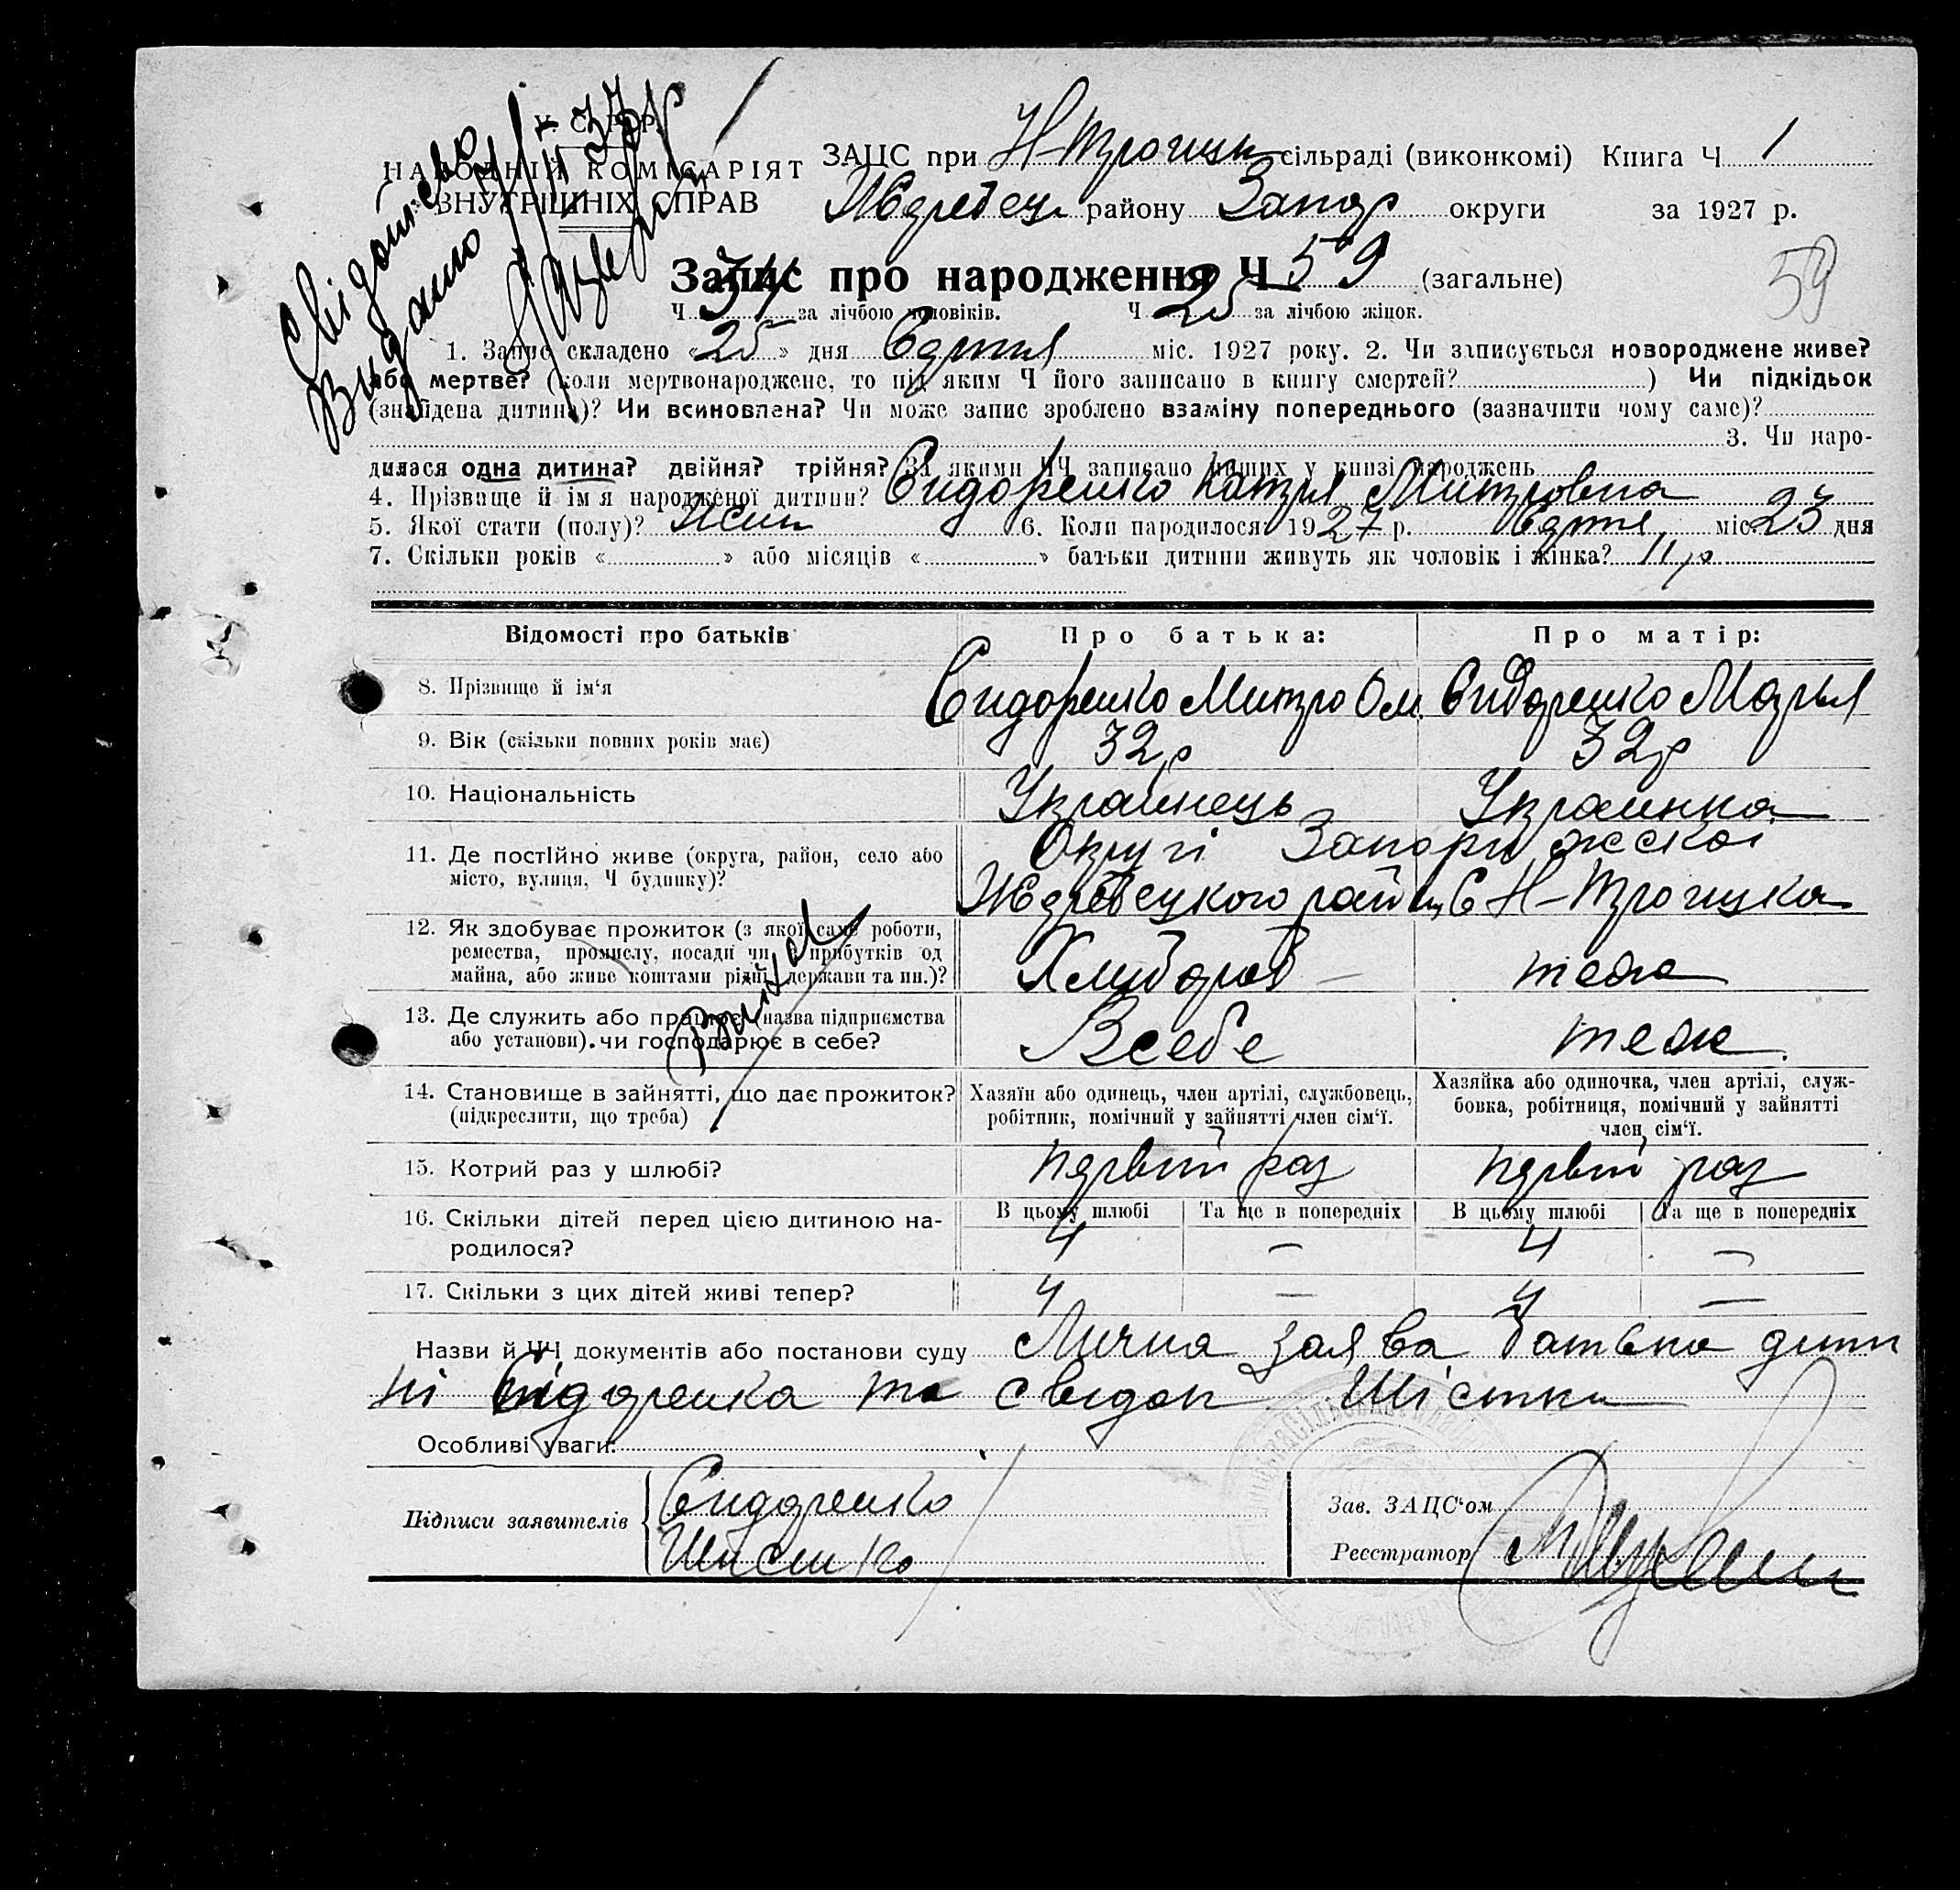 Свідоцтво
Видано
У. С. Р. Р.
НАРОДНІЙ КОМІСАРІЯТ
ВНУТРІШНІХ СПРАВ
ЗАЦС при Н-Троицк сільраді (виконкомі) Книга Ч 1
Жеребец району Запор округи за 1927 р.
Запис про народження Ч 59 (загальне)
59
Ч 34 за лічбою чоловіків. Ч 25 за лічбою жінок.
1. Запис складено «25» дня Сертня міс. 1927 року. 2. Чи записується новороджене живе?
або мертве? (коли мертвонароджене, то під яким Ч його записано в книгу смертей? ) Чи підкідьок
(знайдена дитина)? Чи всиновлена? Чи може запис зроблено взаміну попереднього (зазначити чому саме)?
3. Чи наро-
дилася одна дитина? двійня? трійня? За якими ЧЧ записано инших у книзі народжень
4. Прізвище й ім'я народженої дитини? Сидоренко Катря Митровна
5. Якої стати (полу)? Жин 6. Коли народилося 1927 р. Серпня міс 23 дня
7. Скільки років « » або місяців « » батьки дитини живуть як чоловік і жінка? 11 р
Відомості про батьків Про батька: Про матір:
8. Прізвище й ім'я Сидоренко Митро Ом. Сидоренко Марья
9. Вік (скільки повних років має) 32 р 32 р
10. Національність Украинець Украинка
11. Де постійно живе (округа, район, село або Округі Запорижскоі
місто, вулиця, Ч будинку)? Жеребецкого район С Н-Троицка
12. Як здобуває прожиток (з якої саме роботи,
ремества, промислу, посади чи з прибутків од Хлибороб теж
майна, або живе коштами рідні, держави та ин.)?
13. Де служить або працює (назва підприємства Всебе теж
або установи). чи господарює в себе?
14. Становище в зайнятті, що дає прожиток? Хазяїн або одинець, член артілі, службовець, Хазяйка або одиночка, член артілі, служ-
(підкреслити, що треба) робітник, помічний у зайнятті член сім'ї. бовка, робітниця, помічний у зайнятті
член сім'ї.
15. Котрий раз у шлюбі? первий раз первий раз
16. Скільки дітей перед цією дитиною на- В цьому шлюбі Та ще в попередніх В цьому шлюбі Та ще в попередніх
родилося? 4 — 4 —
17. Скільки з цих дітей живі тепер? 4 — 4 —
Назви й ЧЧ документів або постанови суду Лична заява батька дити
ні Сідоренка та свідок Шістки
Особливі уваги:
Підписи заявителів Сидоренко
Зав. ЗАЦС'ом
Реєстратор